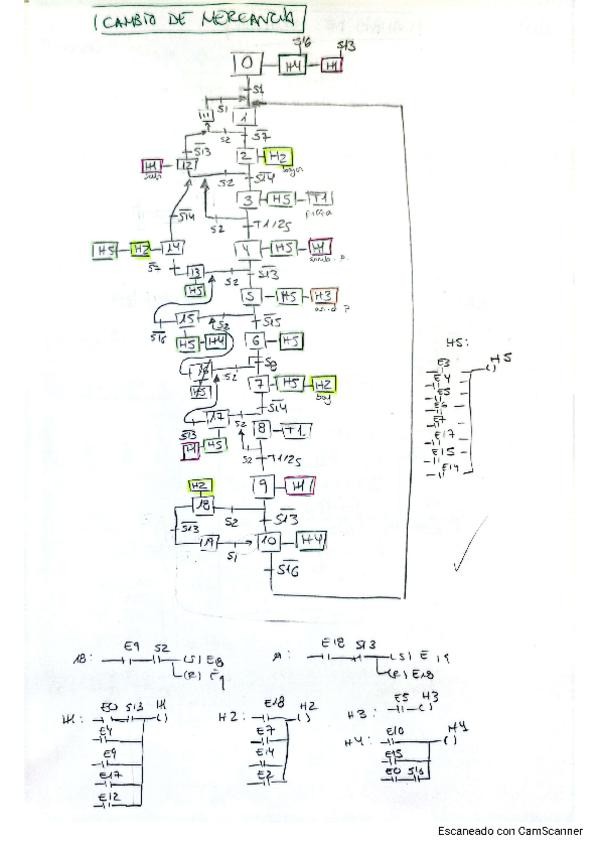 CAMBIO DE MERCANCÍA
S16 S13
0 H4 H1
S1
S1
11 1
S2 S7
S13
H1 12 2 H2
subir bajar
S2 S14
3 H5 T1
pinza
S14
S2 T1/2S
H5 H2 14 4 H5 H1
S7 13 S2 S13
H5 5 H5 H3
15 S2 S15
S16
H5 H4 6 H5
16 S2 S8
H5 7 H5 H2
baj
S14
17 S2 8 T1
S13
H1 H5 S2 T1/2S
H2 9 H1
18 S2 S13
S13
19 S1 10 H4
S16
H5:
E3 H5
E4
E5
E6
E7
E17
E15
E14
18: E9 S2 (S) E18
(R) E9
19: E18 S13 (S) E19
(R) E18
H1: E0 S13 H1
E4
E9
E17
E12
H2: E18 H2
E7
E14
E2
H3: E5 H3
H4: E10 H4
E15
E0 S16
Escaneado con CamScanner